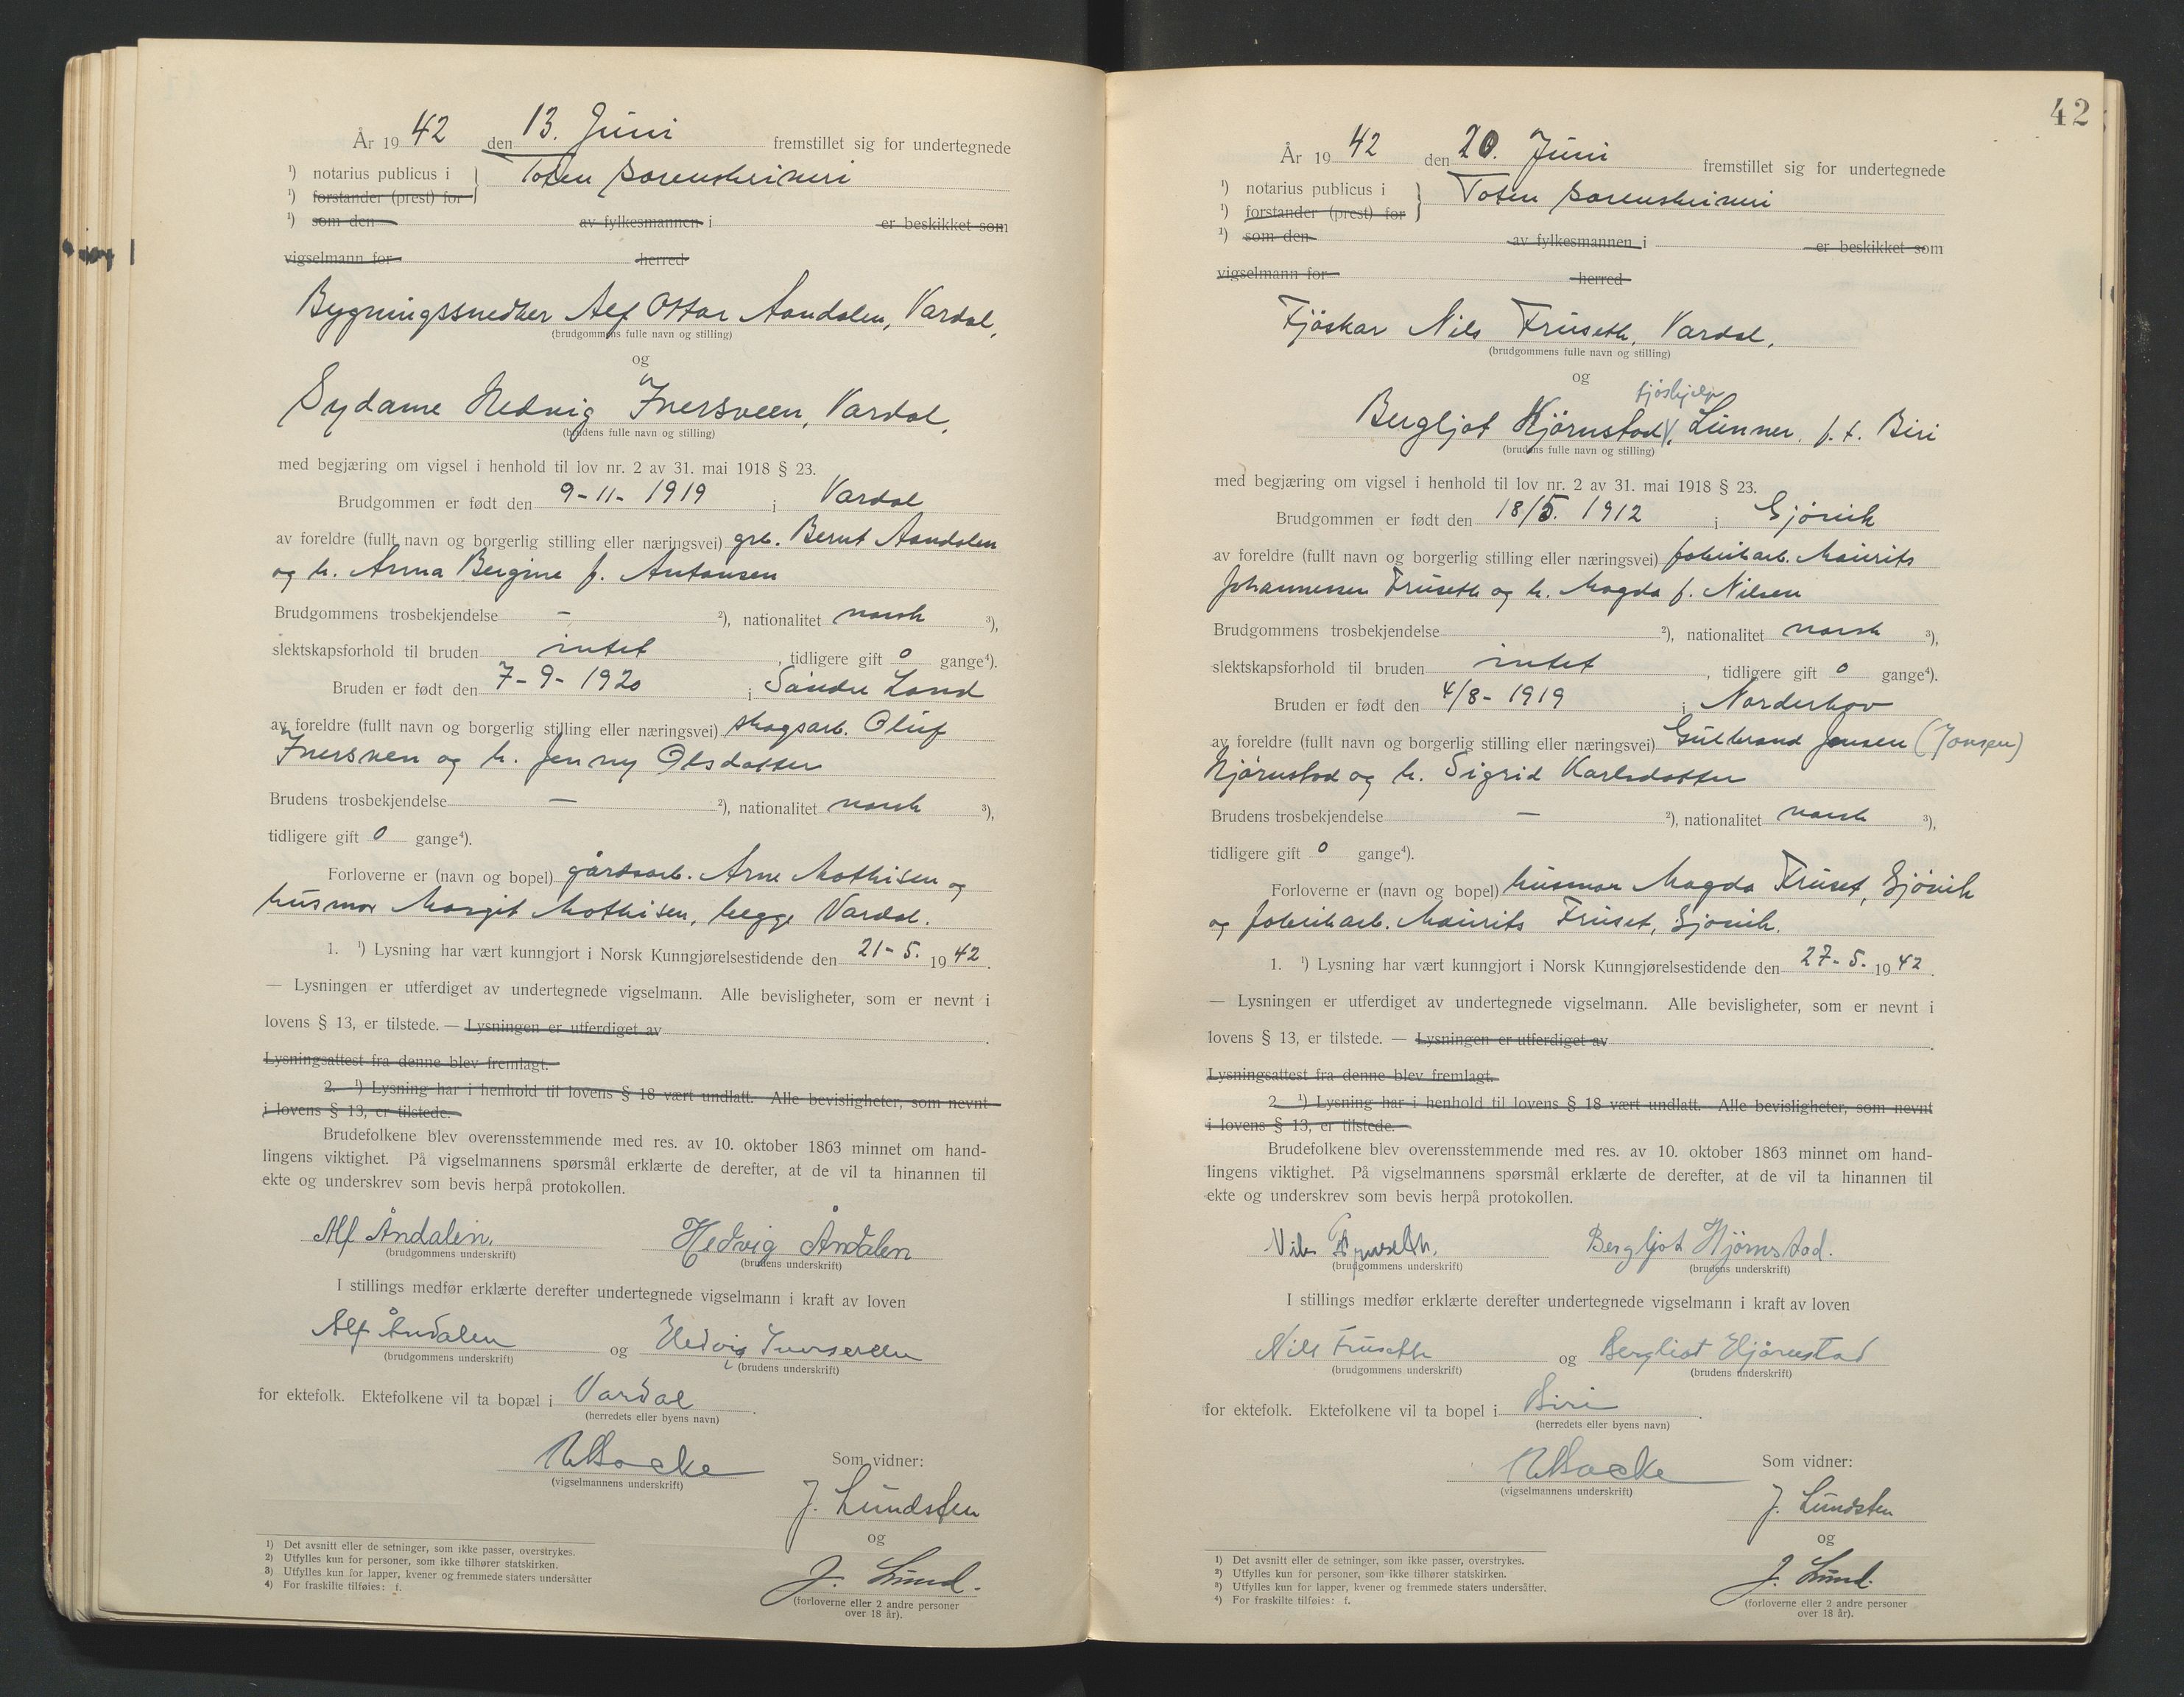 År 19 42 den 13. Juni fremstillet sig for undertegnede
1) notarius publicus i } Toten sorenskriveri
1) forstander (prest) for
1) som den av fylkesmannen i er beskikket som
vigselmann for herred
Bygningssnedker Alf Ottar Aandalen, Vardal,
(brudgommens fulle navn og stilling)
og
Sydame Hedvig Iversveen, Vardal,
(brudens fulle navn og stilling)
med begjæring om vigsel i henhold til lov nr. 2 av 31. mai 1918 § 23.
Brudgommen er født den 9-11-1919 i Vardal
av foreldre (fullt navn og borgerlig stilling eller næringsvei) grb. Bernt Aandalen
og h. Anna Bergine f. Antonsen
Brudgommens trosbekjendelse – 2), nationalitet norsk 3),
slektskapsforhold til bruden intet, tidligere gift 0 gange4).
Bruden er født den 7-9-1920 i Søndre Land
av foreldre (fullt navn og borgerlig stilling eller næringsvei) skogsarb. Oluf
Iversven og h. Jenny Olsdatter
Brudens trosbekjendelse – 2), nationalitet norsk 3),
tidligere gift 0 gange4).
Forloverne er (navn og bopel) gårdsarb. Arne Mathisen og
husmor Margit Mathisen, begge Vardal.
1. 1) Lysning har vært kunngjort i Norsk Kunngjørelsestidende den 21-5. 1942.
— Lysningen er utferdiget av undertegnede vigselmann. Alle bevisligheter, som er nevnt i
lovens § 13, er tilstede. — Lysningen er utferdiget av
Lysningsattest fra denne blev fremlagt.
2. 1) Lysning har i henhold til lovens § 18 vært undlatt. Alle bevisligheter, som nevnt
i lovens § 13, er tilstede.
Brudefolkene blev overensstemmende med res. av 10. oktober 1863 minnet om hand-
lingens viktighet. På vigselmannens spørsmål erklærte de derefter, at de vil ta hinannen til
ekte og underskrev som bevis herpå protokollen.
Alf Åndalen. Hedvig Åndalen
(brudgommens underskrift) (brudens underskrift)
I stillings medfør erklærte derefter undertegnede vigselmann i kraft av loven
Alf Åndalen og Hedvig Iversveen
(brudgommens underskrift) (brudens underskrift)
for ektefolk. Ektefolkene vil ta bopæl i Vardal.
(herredets eller byens navn)
(vigselmannens underskrift)
Som vidner:
J. Lundsten
og
J. Lund.
(forloverne eller 2 andre personer
over 18 år).
1) Det avsnitt eller de setninger, som ikke passer, overstrykes.
2) Utfylles kun for personer, som ikke tilhører statskirken.
3) Utfylles kun for lapper, kvener og fremmede staters undersåtter
4) For fraskilte tilføies: f.
42
År 19 42 den 20. Juni fremstillet sig for undertegnede
1) notarius publicus i } Toten sorenskriveri
1) forstander (prest) for
1) som den av fylkesmannen i er beskikket som
vigselmann for herred
Fjøskar Nils Fruseth, Vardal,
(brudgommens fulle navn og stilling)
og
fjøshjelp
Bergljot Hjørnstad, Lunner. f. t. Biri
(brudens fulle navn og stilling)
med begjæring om vigsel i henhold til lov nr. 2 av 31. mai 1918 § 23.
Brudgommen er født den 18/5. 1912 i Gjøvik
av foreldre (fullt navn og borgerlig stilling eller næringsvei) fabrikarb. Maurits
Johannessen Fruseth og h. Magda f. Nilsen
Brudgommens trosbekjendelse 2), nationalitet norsk 3),
slektskapsforhold til bruden intet, tidligere gift 0 gange4).
Bruden er født den 4/8-1919 i Norderhov
av foreldre (fullt navn og borgerlig stilling eller næringsvei) Gulbrand Jensen (Jonsen)
Hjørnstad og h. Sigrid Karlsdatter
Brudens trosbekjendelse – 2), nationalitet norsk 3),
tidligere gift 0 gange4).
Forloverne er (navn og bopel) husmor Magda Fruset, Gjøvik
og fabrikarb. Maurits Fruset, Gjøvik.
1. 1) Lysning har vært kunngjort i Norsk Kunngjørelsestidende den 27-5. 1942.
— Lysningen er utferdiget av undertegnede vigselmann. Alle bevisligheter, som er nevnt i
lovens § 13, er tilstede. — Lysningen er utferdiget av
Lysningsattest fra denne blev fremlagt.
2. 1) Lysning har i henhold til lovens § 18 vært undlatt. Alle bevisligheter, som nevnt
i lovens § 13, er tilstede.
Brudefolkene blev overensstemmende med res. av 10. oktober 1863 minnet om hand-
lingens viktighet. På vigselmannens spørsmål erklærte de derefter, at de vil ta hinannen til
ekte og underskrev som bevis herpå protokollen.
Nils Fruseth. Bergljot Hjørnstad.
(brudgommens underskrift) (brudens underskrift)
I stillings medfør erklærte derefter undertegnede vigselmann i kraft av loven
Nils Fruseth og Bergliot Hjørnstad
(brudgommens underskrift) (brudens underskrift)
for ektefolk. Ektefolkene vil ta bopel i Biri.
(herredets eller byens navn)
(vigselmannens underskrift)
Som vidner:
J. Lundsten
og
J. Lund.
(forloverne eller 2 andre personer
over 18 år).
1) Det avsnitt eller de setninger, som ikke passer, overstrykes.
2) Utfylles kun for personer, som ikke tilhører statskirken.
3) Utfylles kun for lapper, kvener og fremmede staters undersåtter.
4) For fraskilte tilføies: f.